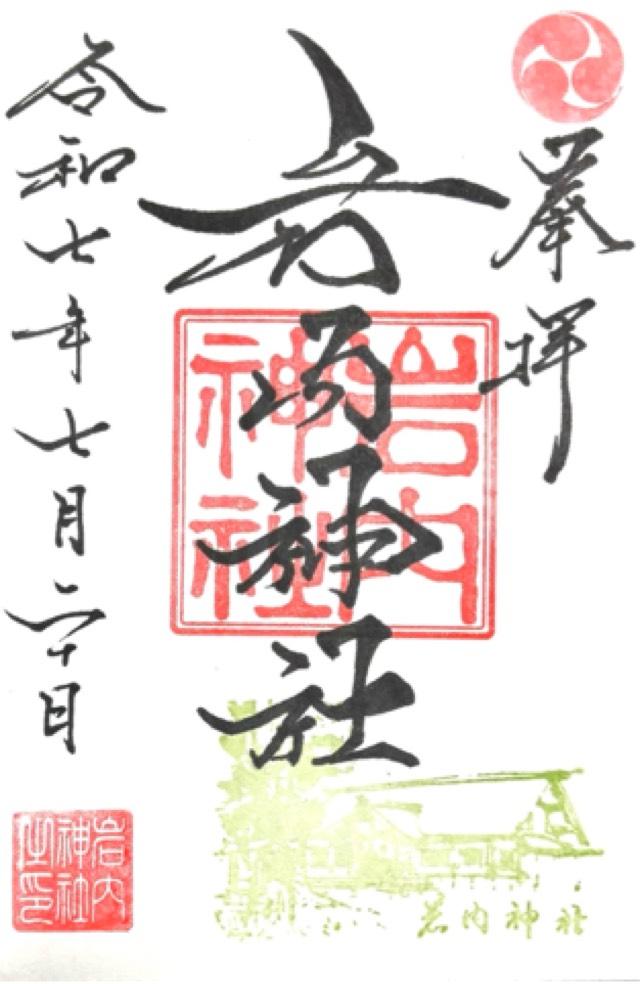 奉拝
岩内神社
令和七年七月二十日
岩内
神社
岩内
神社
之印
岩内神社